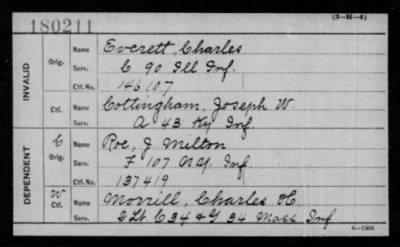 (3-H-4)
180211
INVALID
Orig.
Name Everett, Charles
Serv. C 90 Ill Inf.
Ctf. No. 146107
Ctf.
Name Cottingham, Joseph W.
Serv. A 43 Ky Inf.
DEPENDENT
C
Orig.
Name Roe, J. Milton
Serv. F 107 N.Y. Inf
Ctf. No. 137419
W
Ctf.
Name Morrill, Charles H.
Serv. 2 Lt C 34 & G 34 Mass Inf
6—1503